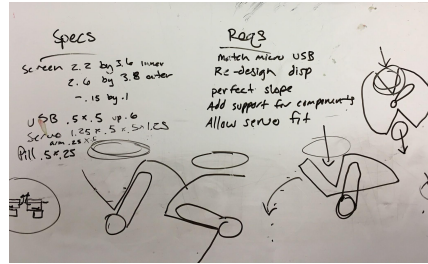 Specs
Screen 2.2 by 3.6 inner
2.6 by 3.8 outer
-.15 by .1
USB .5 x .5 up .6
Servo 1.25 x .5 x .5 x 1.25
arm .25 x
Pill .5 x .25
Reqs
match micro USB
Re-design disp
perfect slope
Add support for components
Allow servo fit